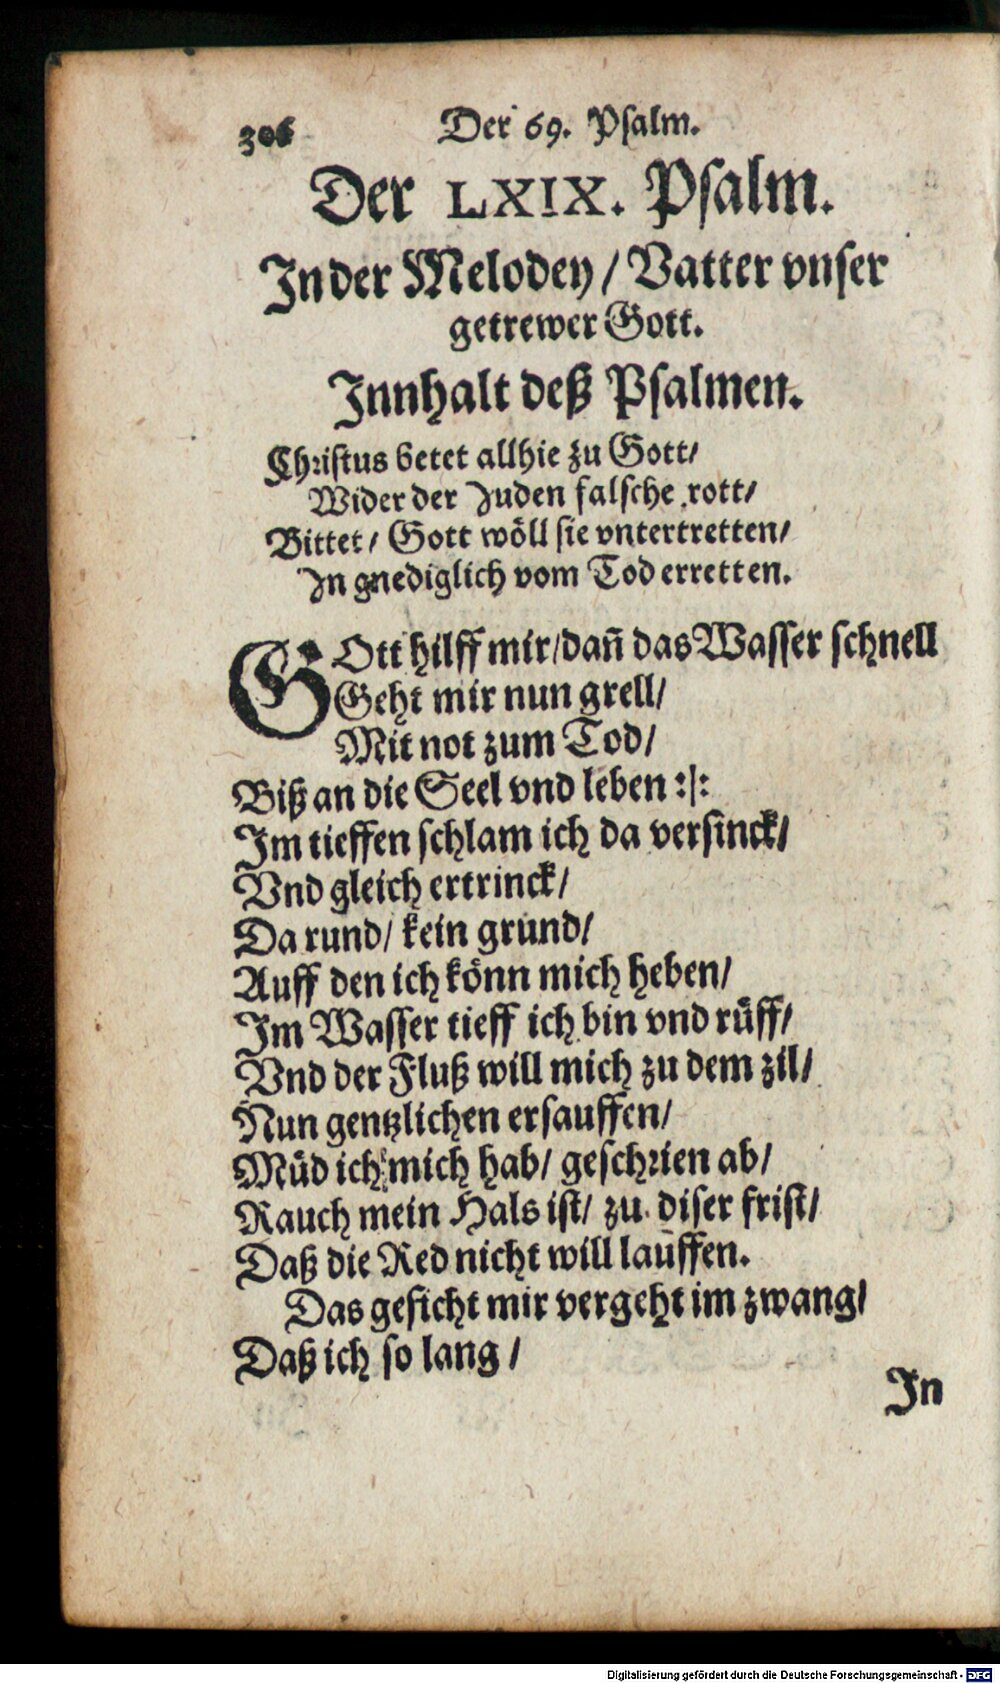 306 Der 69. Psalm.
Der LXIX. Psalm.
In der Melodey / Vatter vnser
getrewer Gott.
Innhalt deß Psalmen.
Christus betet allhie zu Gott/
Wider der Juden falsche rott/
Bittet / Gott wöll sie vntertretten/
In gnediglich vom Tod erretten.
GOtt hilff mir/dañ das Wasser schnell
Geht mir nun grell/
Mit not zum Tod/
Biß an die Seel vnd leben :|:
Im tieffen schlam ich da versinck/
Vnd gleich ertrinck/
Da rund/ kein grund/
Auff den ich könn mich heben/
Im Wasser tieff ich bin vnd rüff/
Vnd der Fluß will mich zu dem zil/
Nun gentzlichen ersauffen/
Müd ich mich hab/ geschrien ab/
Rauch mein Hals ist/ zu diser frist/
Daß die Red nicht will lauffen.
Das gesicht mir vergeht im zwang/
Daß ich so lang /
In
Digitalisierung gefördert durch die Deutsche Forschungsgemeinschaft - DFG